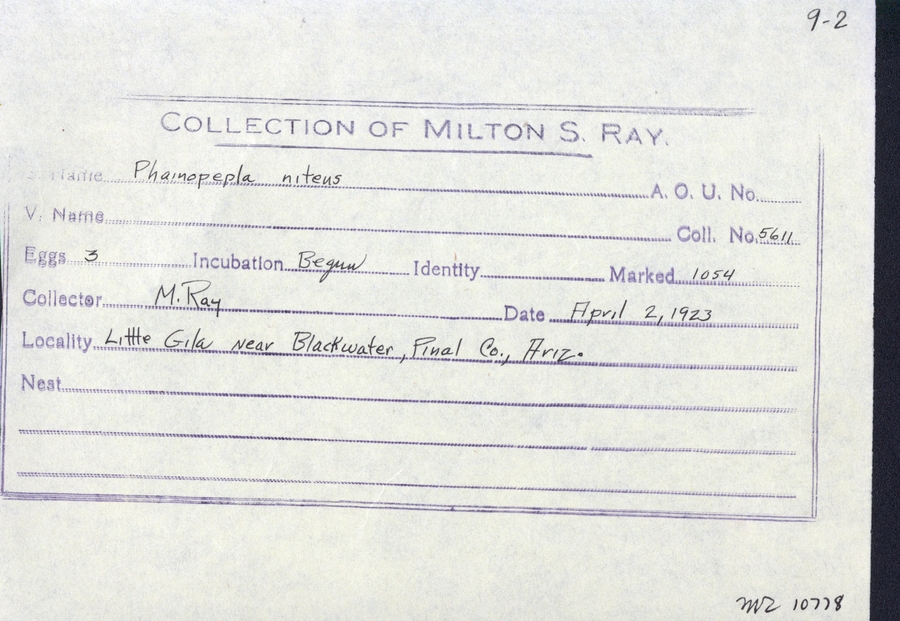 9-2
COLLECTION OF MILTON S. RAY.
S. Name Phainopepla nitens A. O. U. No.
V. Name Coll. No. 5611
Eggs 3 Incubation Begun Identity Marked 1054
Collector M. Ray Date April 2, 1923
Locality Little Gila near Blackwater, Pinal Co., Ariz.
Nest
MR 10778